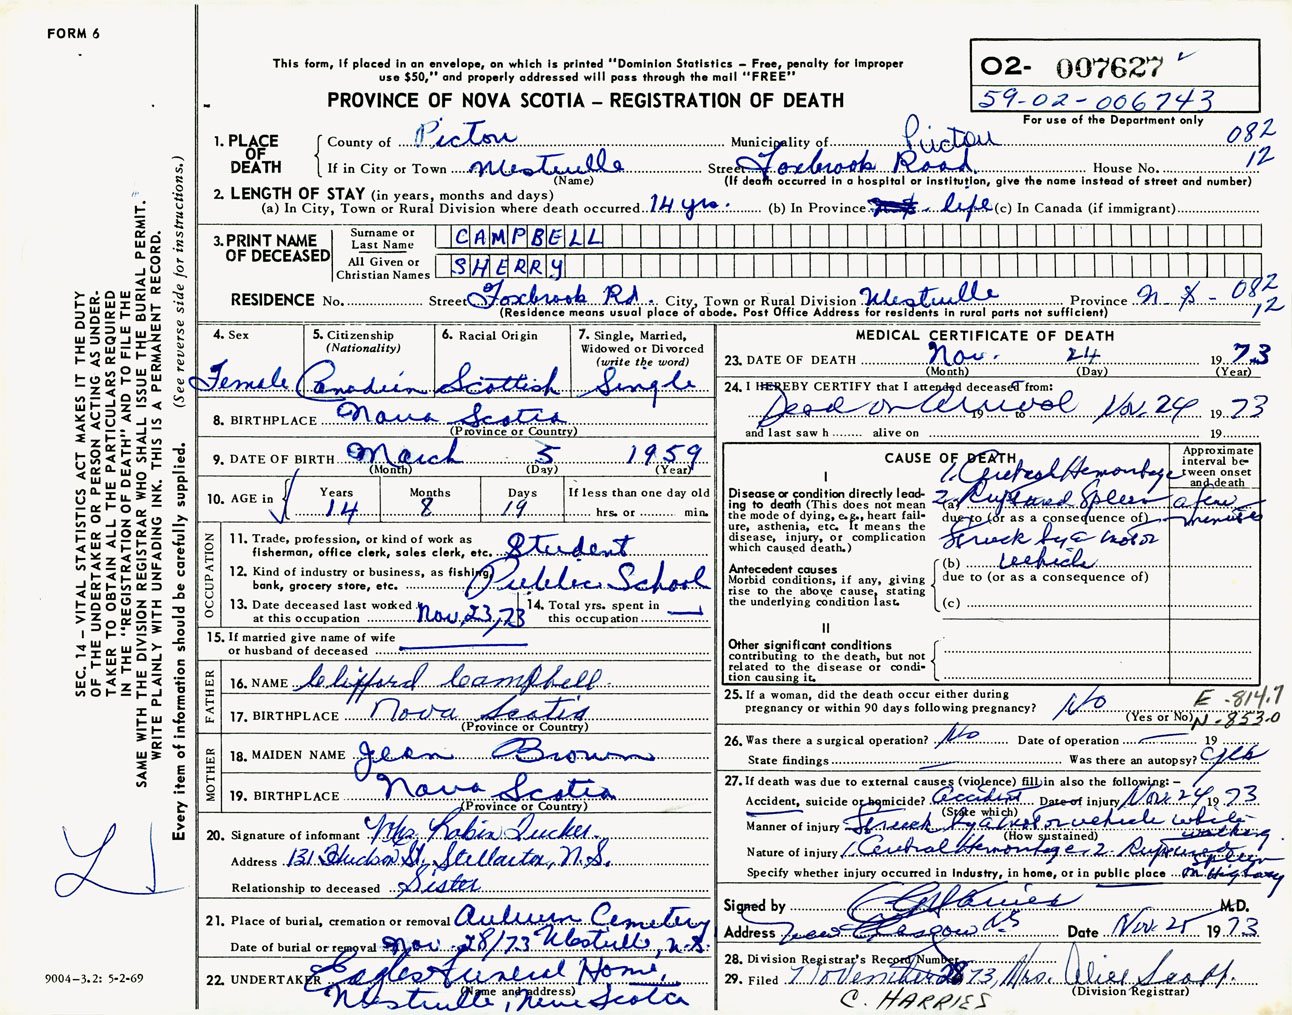 FORM 6
This form, if placed in an envelope, on which is printed "Dominion Statistics – Free, penalty for improper
use $50," and properly addressed will pass through the mail "FREE"
PROVINCE OF NOVA SCOTIA – REGISTRATION OF DEATH
02- 007627
59-02-006743
For use of the Department only
082
12
1. PLACE OF DEATH
County of Pictou Municipality of Pictou
If in City or Town Westville Street Foxbrook Road House No.
(Name) (If death occurred in a hospital or institution, give the name instead of street and number)
2. LENGTH OF STAY (in years, months and days)
(a) In City, Town or Rural Division where death occurred 14 yrs. (b) In Province life (c) In Canada (if immigrant)
3. PRINT NAME OF DECEASED
Surname or Last Name CAMPBELL
All Given or Christian Names SHERRY
RESIDENCE No. Street Foxbrook Rd. City, Town or Rural Division Westville Province N.S. 082
12
(Residence means usual place of abode. Post Office Address for residents in rural parts not sufficient)
4. Sex
Female
5. Citizenship
(Nationality)
Canadian
6. Racial Origin
Scottish
7. Single, Married,
Widowed or Divorced
(write the word)
Single
8. BIRTHPLACE Nova Scotia
(Province or Country)
9. DATE OF BIRTH March 5 1959
(Month) (Day) (Year)
10. AGE in Years Months Days If less than one day old
14 8 19 hrs. or min.
OCCUPATION
11. Trade, profession, or kind of work as
fisherman, office clerk, sales clerk, etc. Student
12. Kind of industry or business, as fishing,
bank, grocery store, etc. Public School
13. Date deceased last worked
at this occupation Nov, 23, 73
14. Total yrs. spent in
this occupation
15. If married give name of wife
or husband of deceased
FATHER
16. NAME Clifford Campbell
17. BIRTHPLACE Nova Scotia
(Province or Country)
MOTHER
18. MAIDEN NAME Jean Brown
19. BIRTHPLACE Nova Scotia
(Province or Country)
20. Signature of informant Mrs. Robin Tucker
Address 131 Hudson St, Stellarton, N.S.
Relationship to deceased Sister
21. Place of burial, cremation or removal Auburn Cemetery
Date of burial or removal Nov 28/73 Westville, N.S.
22. UNDERTAKER Eagles Funeral Home,
(Name and address)
Westville, Nova Scotia
MEDICAL CERTIFICATE OF DEATH
23. DATE OF DEATH Nov. 24 1973
(Month) (Day) (Year)
24. I HEREBY CERTIFY that I attended deceased from:
Dead on Arrival 19 to Nov. 24 1973
and last saw h alive on 19
CAUSE OF DEATH
Approximate
interval be-
tween onset
and death
I
Disease or condition directly lead-
ing to death (This does not mean
the mode of dying, e.g., heart fail-
ure, asthenia, etc. It means the
disease, injury, or complication
which caused death.)
1. Cerebral Hemorrhage
(a) 2. Ruptured Spleen a few
due to (or as a consequence of) minutes
Struck by a motor
(b) vehicle
due to (or as a consequence of)
(c)
Antecedent causes
Morbid conditions, if any, giving
rise to the above cause, stating
the underlying condition last.
II
Other significant conditions
contributing to the death, but not
related to the disease or condi-
tion causing it.
25. If a woman, did the death occur either during
pregnancy or within 90 days following pregnancy? No
(Yes or No)
E -814.7
N-853.0
26. Was there a surgical operation? No Date of operation 19
State findings Was there an autopsy? Yes
27. If death was due to external causes (violence) fill in also the following: –
Accident, suicide or homicide? Accident Date of injury Nov. 24 1973
(State which)
Manner of injury Struck by a motor vehicle while
(How sustained) walking
Nature of injury 1. Cerebral Hemorrhage 2. Ruptured
Spleen
Specify whether injury occurred in Industry, in home, or in public place on Highway
Signed by M.D.
Address New Glasgow NS Date Nov. 25 1973
28. Division Registrar's Record Number
29. Filed November 28 73, Mrs. Alice Scott
(Division Registrar)
C. HARRIES
SEC. 14 – VITAL STATISTICS ACT MAKES IT THE DUTY
OF THE UNDERTAKER OR PERSON ACTING AS UNDER-
TAKER TO OBTAIN ALL THE PARTICULARS REQUIRED
IN THE "REGISTRATION OF DEATH" AND TO FILE THE
SAME WITH THE DIVISION REGISTRAR WHO SHALL ISSUE THE BURIAL PERMIT.
WRITE PLAINLY WITH UNFADING INK. THIS IS A PERMANENT RECORD.
Every item of information should be carefully supplied. (See reverse side for instructions.)
9004–3.2: 5-2-69